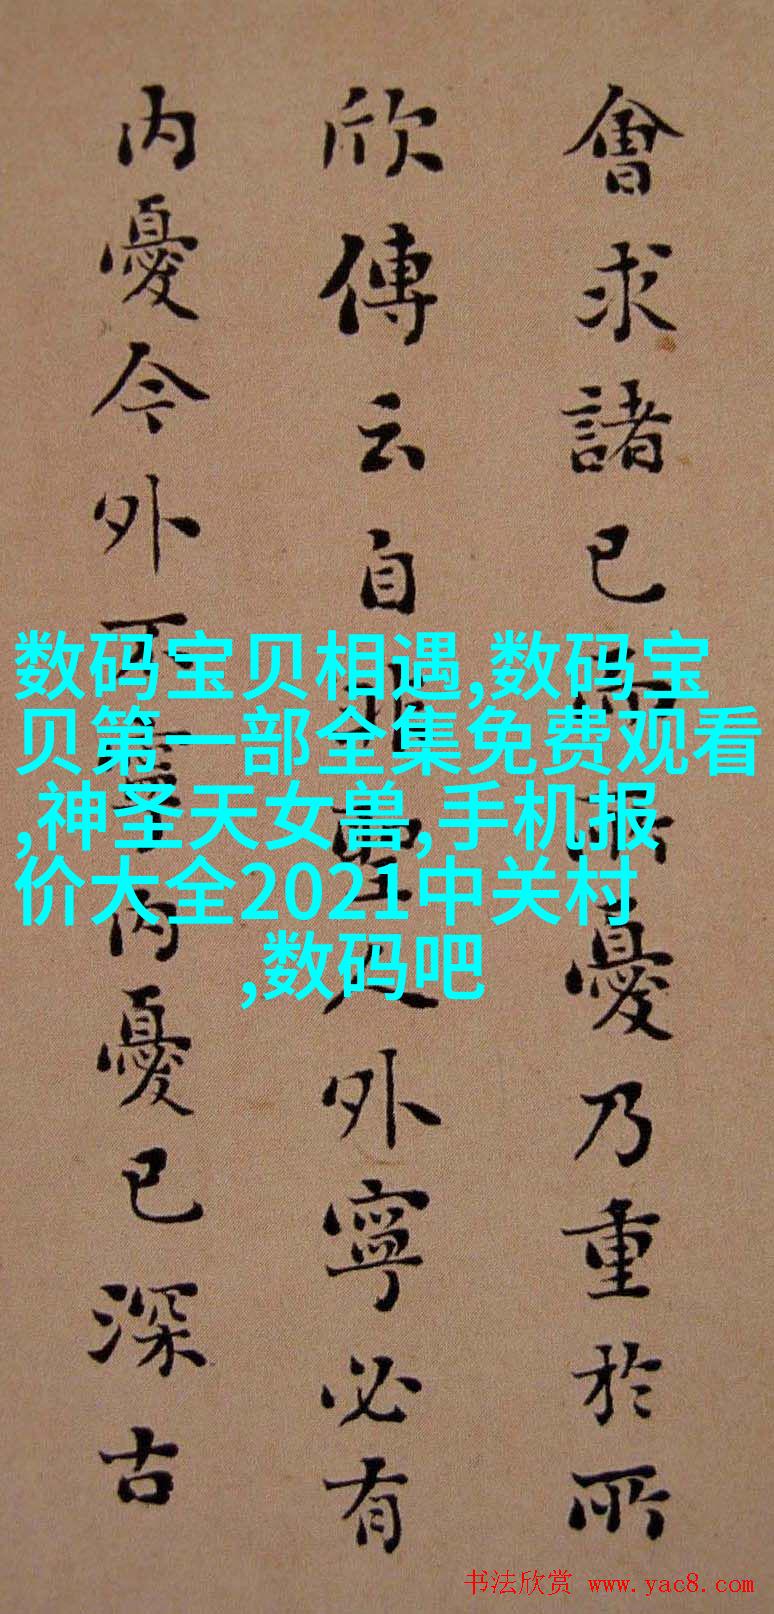 會求諸己而所憂乃重於所
欣傳云自非聖人外寧必有
内憂今外不寧内憂已深古
数码宝贝相遇,数码宝
贝第一部全集免费观看
,神圣天女兽,手机报
价大全2021中关村
,数码吧
书法欣赏 www.yac8.com